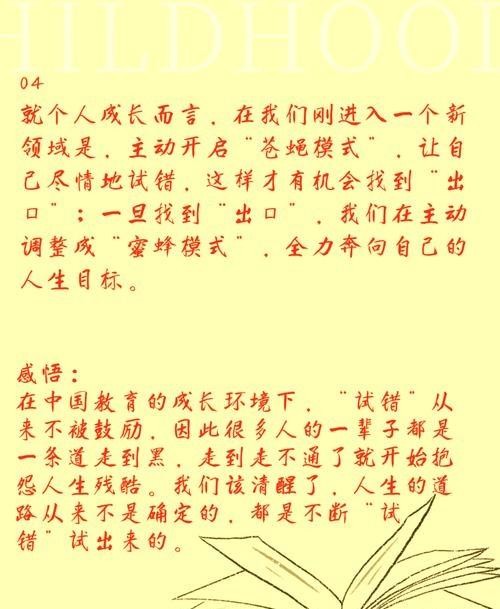 HILDHOOD
04
就个人成长而言，在我们刚进入一个新
领域是，主动开启“苍蝇模式”，让自
己尽情地试错，这样才有机会找到“出
口”；一旦找到“出口”，我们在主动
调整成“蜜蜂模式”，全力奔向自己的
人生目标。
感悟：
在中国教育的成长环境下，“试错”从
来不被鼓励，因此很多人的一辈子都是
一条道走到黑，走到走不通了就开始抱
怨人生残酷。我们该清醒了，人生的道
路从来不是确定的，都是不断“试
错”试出来的。